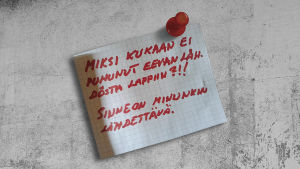 MIKSI KUKAAN EI
PUHUNUT EEVAN LÄH-
DÖSTÄ LAPPIIN?!!
SINNE ON MINUNKIN
LÄHDETTÄVÄ.